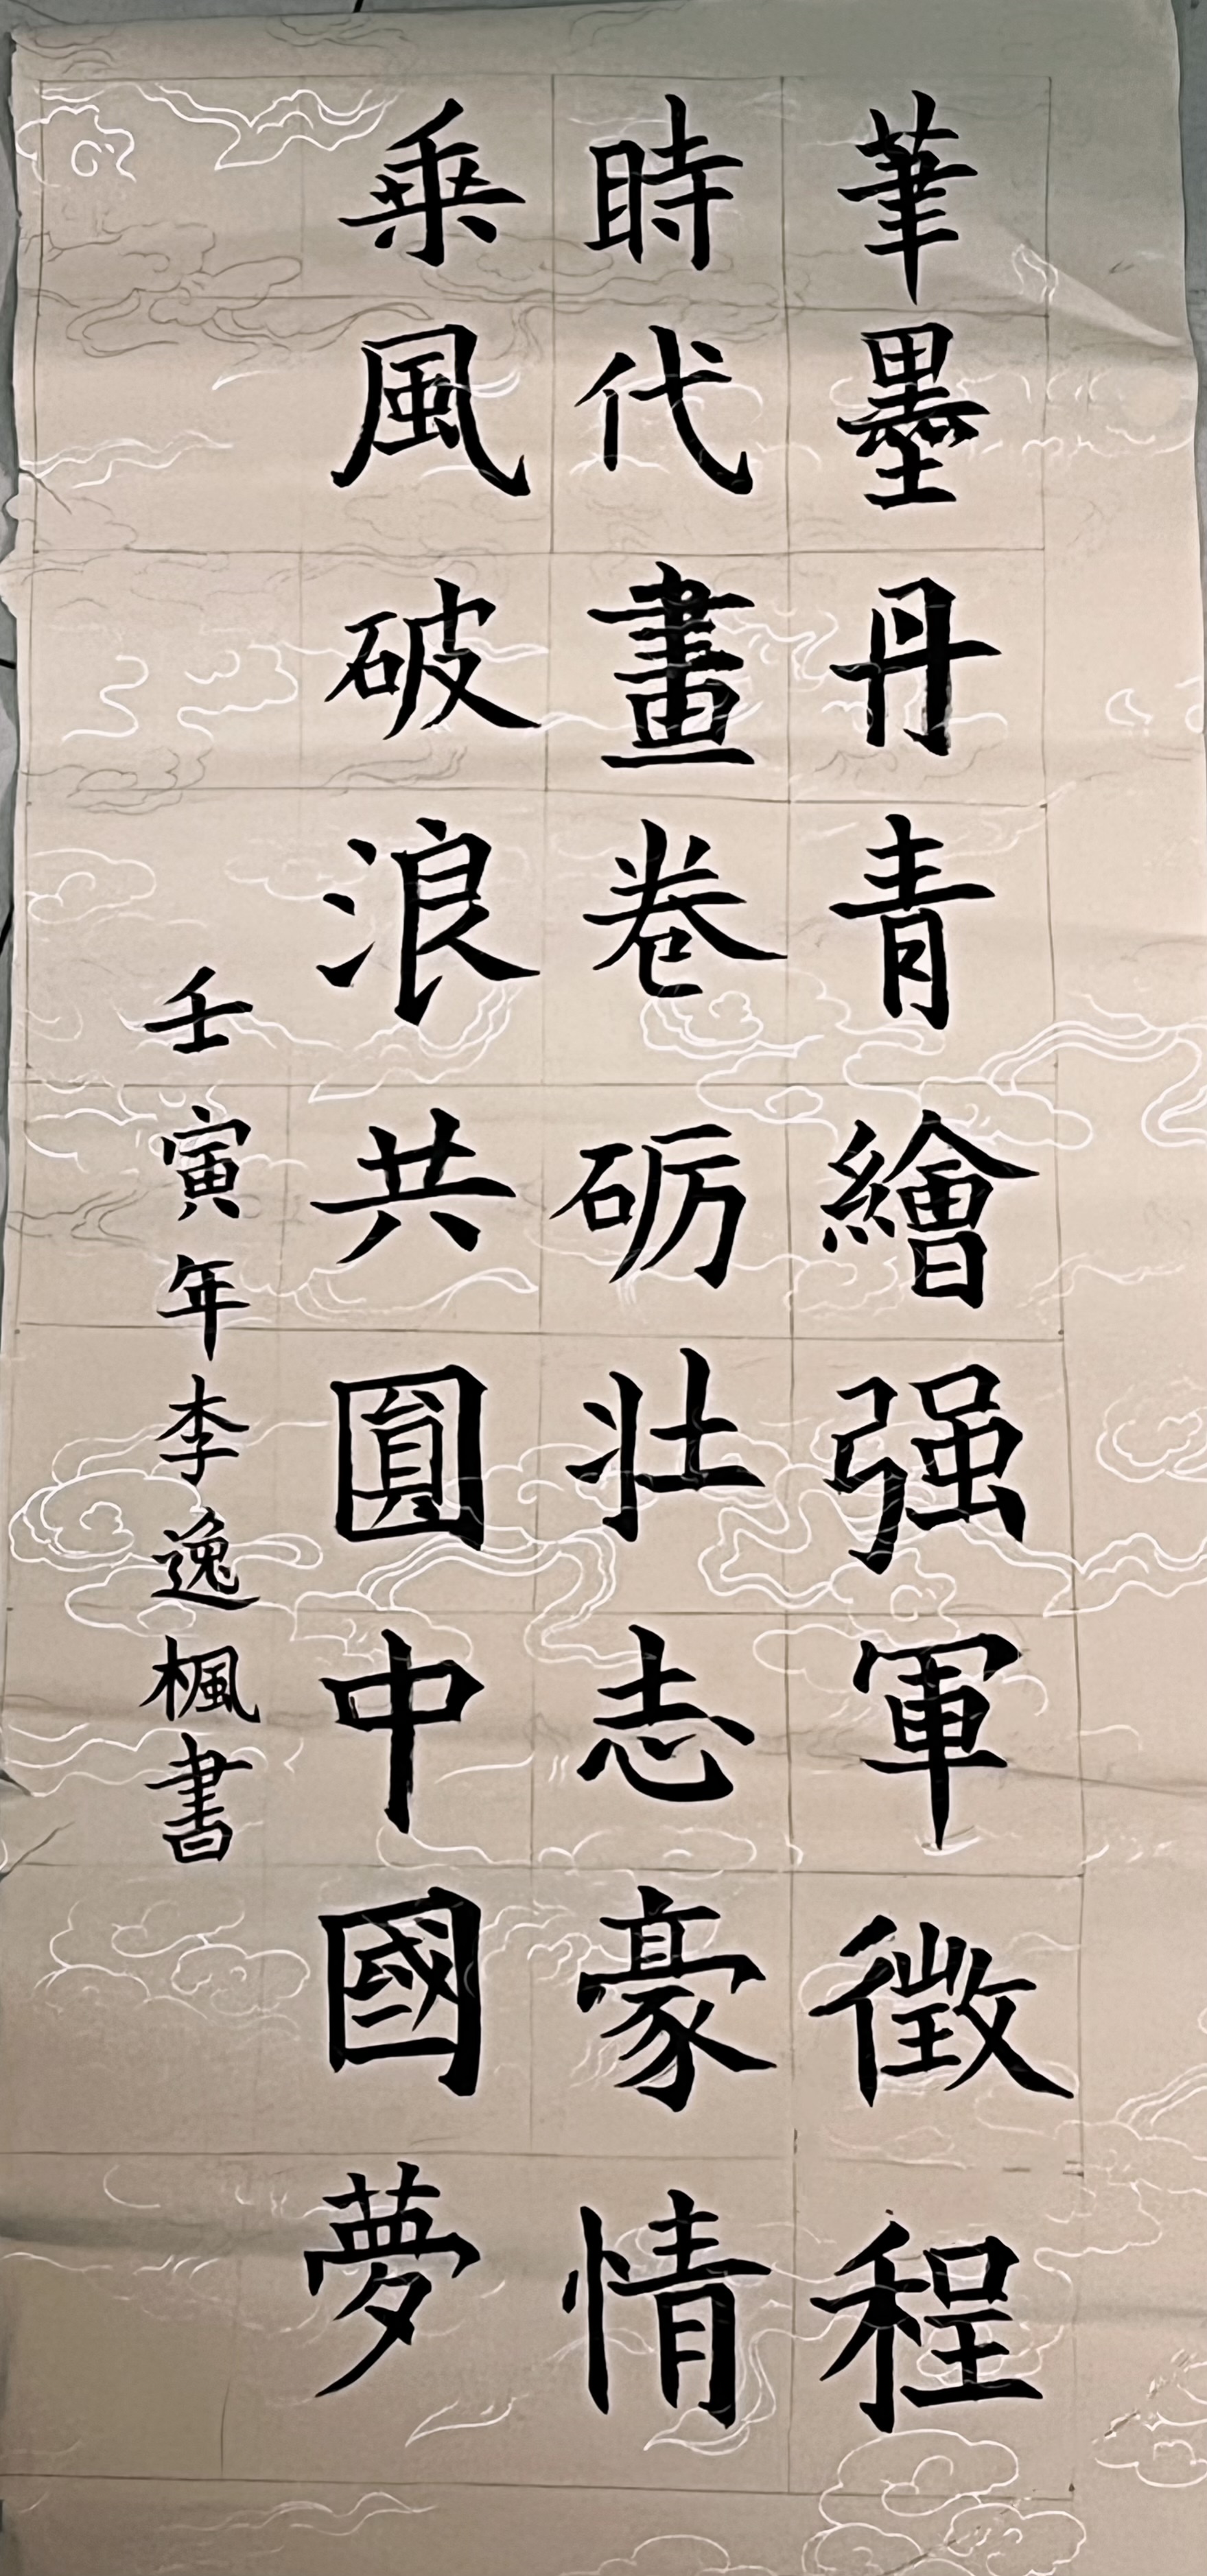 筆墨丹青繪强軍徵程
時代畫卷砺壯志豪情
乘風破浪共圓中國夢
壬寅年李逸楓書